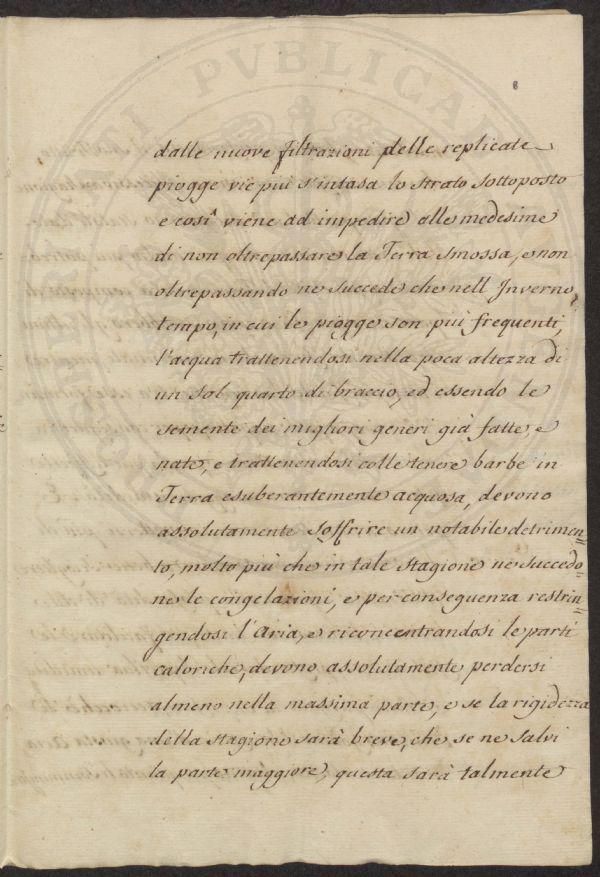 PVBLICAE
dalle nuove filtrazioni delle replicate
piogge vie più s'intasa lo strato sottoposto
e così viene ad impedire alle medesime
di non oltrepassare la Terra smossa, e non
oltrepassando ne succede che nell Inverno,
tempo, in cui le piogge son più frequenti,
l'acqua trattenendosi nella poca altezza di
un sol quarto di braccio, ed essendo le
semente dei migliori generi già fatte, e
nate, e trattenendosi colle tenere barbe in
Terra esuberantemente acquosa, devono
assolutamente soffrire un notabile detrimen=
to, molto più che in tale stagione ne succedo=
no le congelazioni, e per conseguenza restrin=
gendosi l'Aria, e riconcentrandosi le parti
caloriche, devono assolutamente perdersi
almeno nella massima parte, e se la rigidezza
della stagione sarà breve, che se ne salvi
la parte maggiore, questa sarà talmente